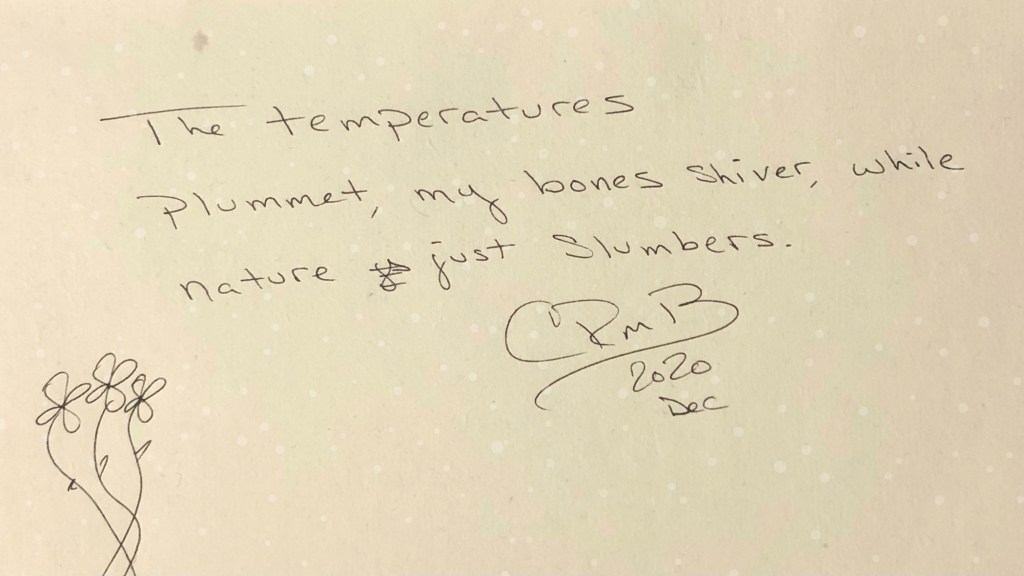 The temperatures
plummet, my bones shiver, while
nature just slumbers.
CRMB
2020
Dec